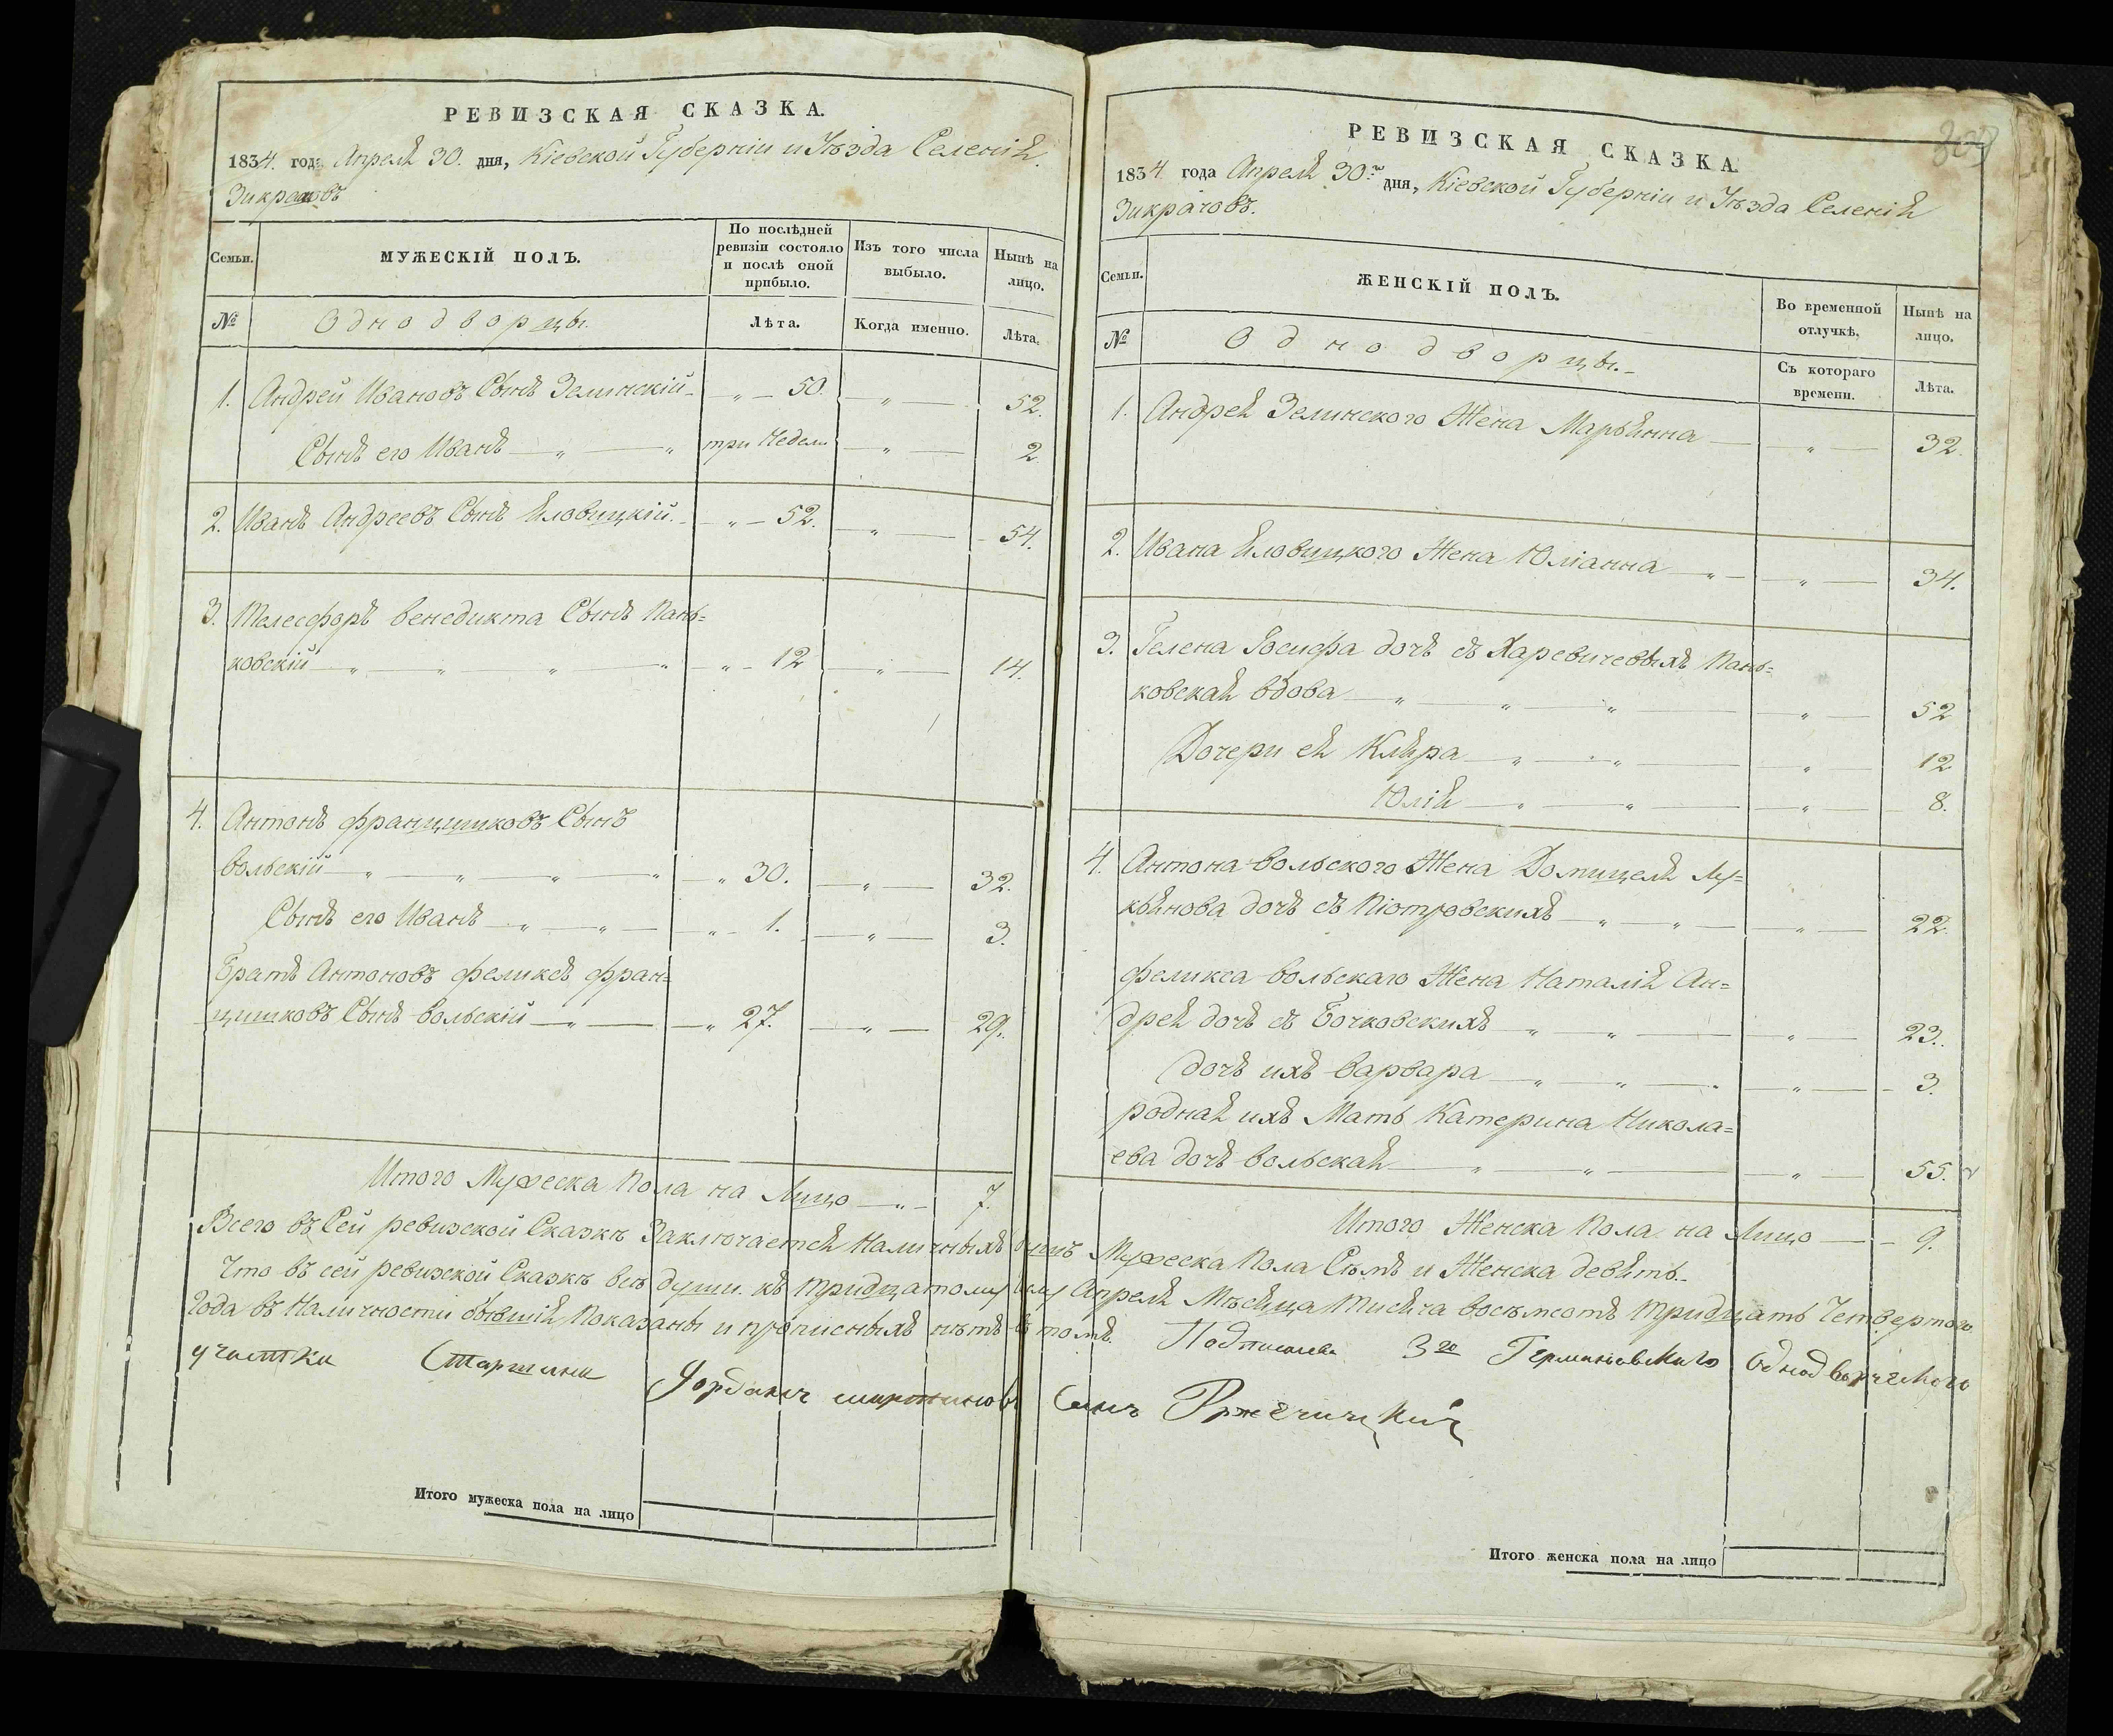 РЕВИЗСКАЯ СКАЗКА.
1834. года Апреля 30. дня, Кіевской Губерніи и Уѣзда Селенія
Зикрачовъ
Семьи.
МУЖЕСКІЙ ПОЛЪ.
По послѣдней ревизіи состояло и послѣ оной прибыло.
Изъ того числа выбыло.
Нынѣ на лицо.
№
Однодворцы.
Лѣта.
Когда именно.
Лѣта.
1. Андрей Ивановъ Сынъ Зелинскій — „ — 50. — „ — 52.
Сынъ его Иванъ — „ — „ три Недели — „ — 2
2. Иванъ Андреевъ Сынъ Яловицкій. — „ — 52. — „ — 54.
3. Телесфоръ Венедикта Сынъ Пань=
ковскій — „ — „ — „ — „ — „ — 12 — „ — 14.
4. Антонъ францишковъ Сынъ
Вольскій — „ — „ — „ — „ — „ 30. — „ — 32.
Сынъ его Иванъ — „ — „ — „ — 1. — „ — 3.
Братъ Антоновъ феликсъ фран=
цишковъ Сынъ Вольскій — „ — „ 27. — „ — 29.
Итого Мужеска Пола на Лицо — „ — 7.
РЕВИЗСКАЯ СКАЗКА.
1834 года Апреля 30го дня, Кіевской Губерніи и Уѣзда Селенія
Зикрачовъ.
Семьи.
ЖЕНСКІЙ ПОЛЪ.
Во временной отлучкѣ,
Нынѣ на лицо.
№
Однодворцы.
Съ котораго времени.
Лѣта.
1. Андрея Зелинского Жена Марьянна — „ — 32.
2. Ивана Яловицкого Жена Юліанна — „ — „ — 34.
3. Гелена Іосифа дочъ съ Харевичевыхъ Пань=
ковская вдова — „ — „ — „ — „ — 52
Дочери ея Кляра — „ — „ — „ — 12
Юлія — „ — „ — „ — 8.
4. Антона Вольского Жена Домицеля Лу=
кьянова дочъ съ Піотровскихъ — „ — „ — „ — 22.
феликса Вольскаго Жена Наталія Ан=
дрея дочъ съ Бочковскихъ — „ — „ — „ — 23.
дочъ ихъ Варвара — „ — „ — „ — 3.
родная ихъ Мать Катерина Никола=
ева дочъ Вольская — „ — „ — „ — 55.
Итого Женска Пола на Лицо — 9.
Всего въ Сей ревизской Сказкѣ Заключается Наличныхъ душъ Мужеска Пола Сѣмъ и Женска девять.
Что въ сей ревизской Сказкѣ всѣ души къ тридцатому числу Апреля Мѣсяца тисяча восѣмсотъ тридцать Четвертого
Года въ Наличности бывшія Показаны и прописныхъ нѣтъ въ томъ. Подписался 3го Германовскаго Однодворческого
участка Старшина Іорданъ Сынъ Ржечицкій
Итого мужеска пола на лицо
Итого женска пола на лицо